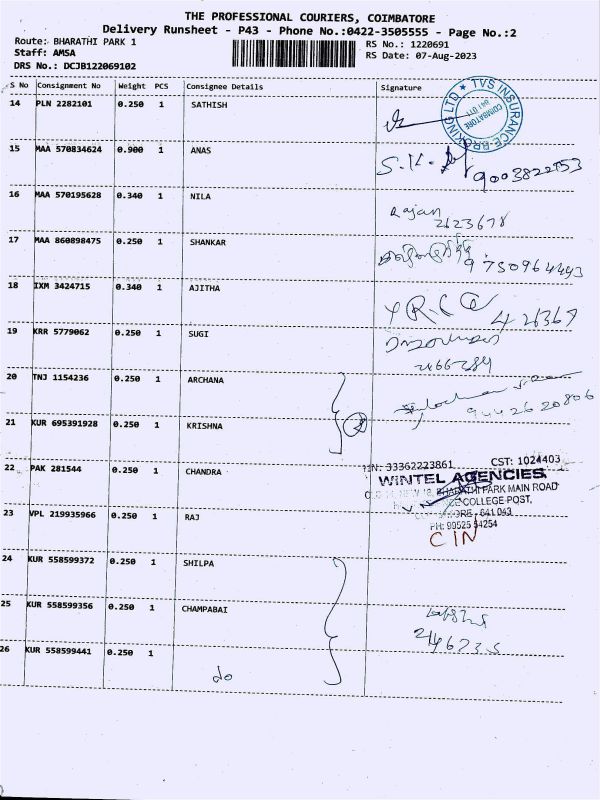 THE PROFESSIONAL COURIERS, COIMBATORE
Delivery Runsheet - P43 - Phone No.:0422-3505555 - Page No.:2
Route: BHARATHI PARK 1
RS No.: 1220691
Staff: AMSA
RS Date: 07-Aug-2023
DRS No.: DCJB122069102
S No Consignment No Weight PCS Consignee Details Signature
14 PLN 2282101 0.250 1 SATHISH
TVS INSURANCE BROKING LTD
COIMBATORE
15 MAA 570834624 0.900 1 ANAS
S.K.
16 MAA 570195628 0.340 1 NILA
Rajan
2123678
17 MAA 860898475 0.250 1 SHANKAR
9750964493
18 IXM 3424715 0.340 1 AJITHA
426369
19 KRR 5779062 0.250 1 SUGI
20 TNJ 1154236 0.250 1 ARCHANA
9442620806
21 KUR 695391928 0.250 1 KRISHNA
22 PAK 281544 0.250 1 CHANDRA
33362223861 CST: 1024403
WINTEL AGENCIES
BHARATHI PARK MAIN ROAD
COLLEGE POST,
641 043
PH: 99525 54254
23 VPL 219935966 0.250 1 RAJ
CIN
24 KUR 558599372 0.250 1 SHILPA
25 KUR 558599356 0.250 1 CHAMPABAI
26 KUR 558599441 0.250 1
do